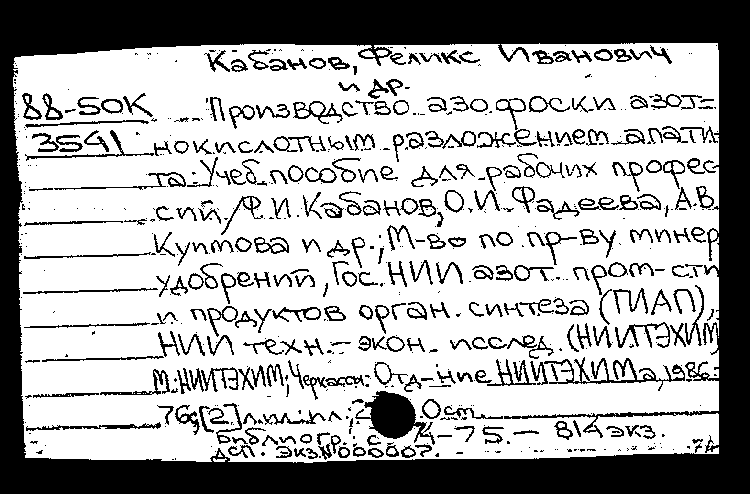 Кабанов, Феликс Иванович
и др.
88-50К Производство азофоски азот=
3541 нокислотным разложением апати-
та: Учеб. пособие для рабочих профес-
сий / Ф.И. Кабанов, О.И. Фадеева, А.В.
Куптова и др.; М-во по пр-ву минер
удобрений, Гос. НИИ азот. пром-сти
и продуктов орган. синтеза (ГИАП),
НИИ техн.-экон. исслед. (НИИТЭХИМ)
М.: НИИТЭХИМ; Черкассы: Отд-ние НИИТЭХИМа, 1986.-
76 с, [2] л. ил.: ил.; 2 Ост.
Библиогр.: с. 74-75. - 814 экз.
ДСП. Экз. № 000007. 74